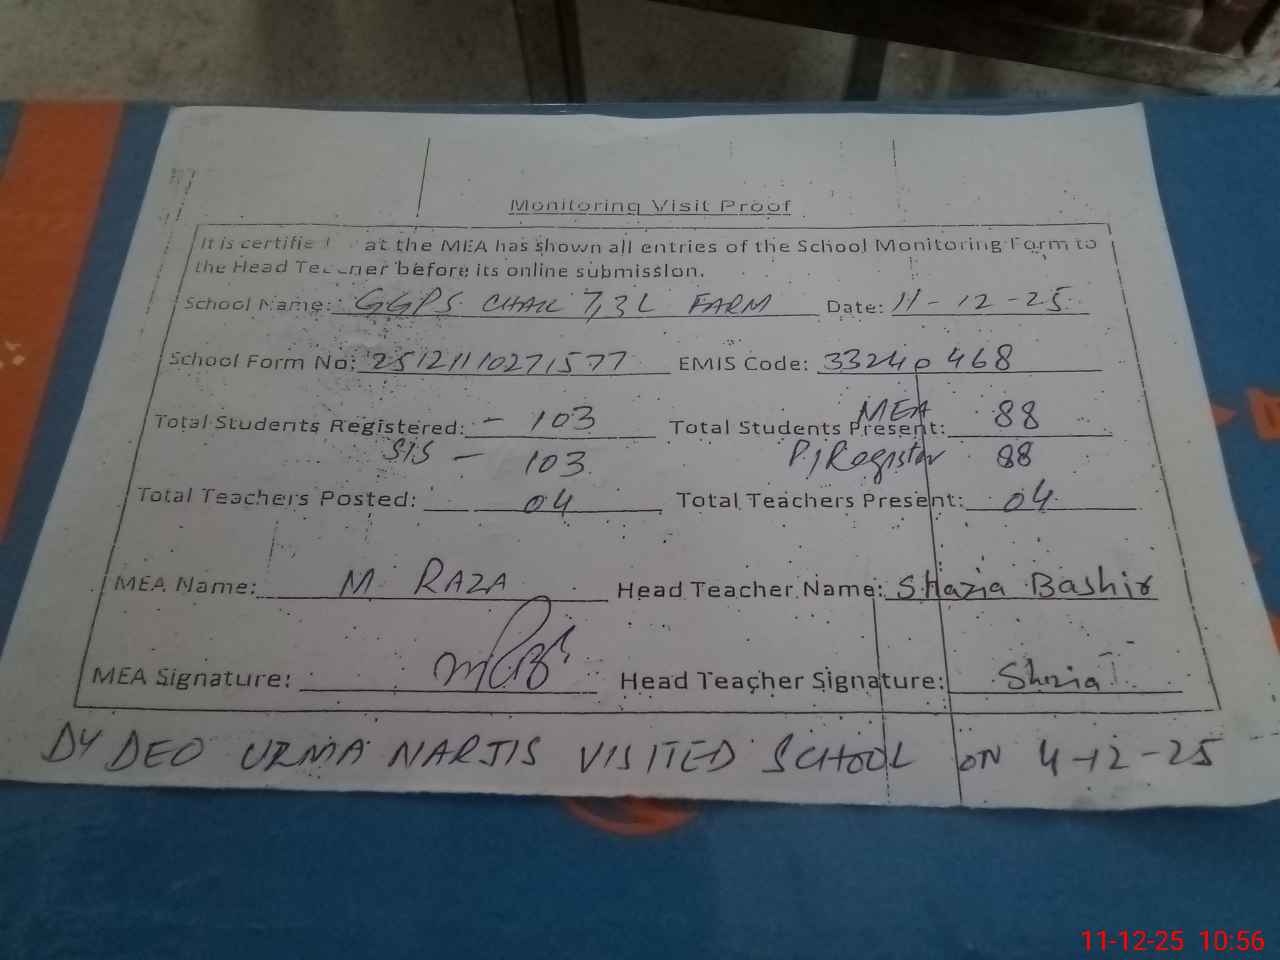 Monitoring Visit Proof
It is certifie at the MEA has shown all entries of the School Monitoring Form to
the Head Teacher before its online submission.
School Name: GGPS CHAK 7,3L FARM Date: 11-12-25
School Form No: 25121110271577 EMIS Code: 33240468
Total Students Registered: - 103 Total Students Present: MEA 88
SIS - 103 P/Register 88
Total Teachers Posted: 04 Total Teachers Present: 04
MEA Name: M RAZA Head Teacher Name: SHazia Bashir
MEA Signature: Head Teacher Signature: Shazia
DY DEO URMA NARJIS VISITED SCHOOL ON 4-12-25
11-12-25 10:56